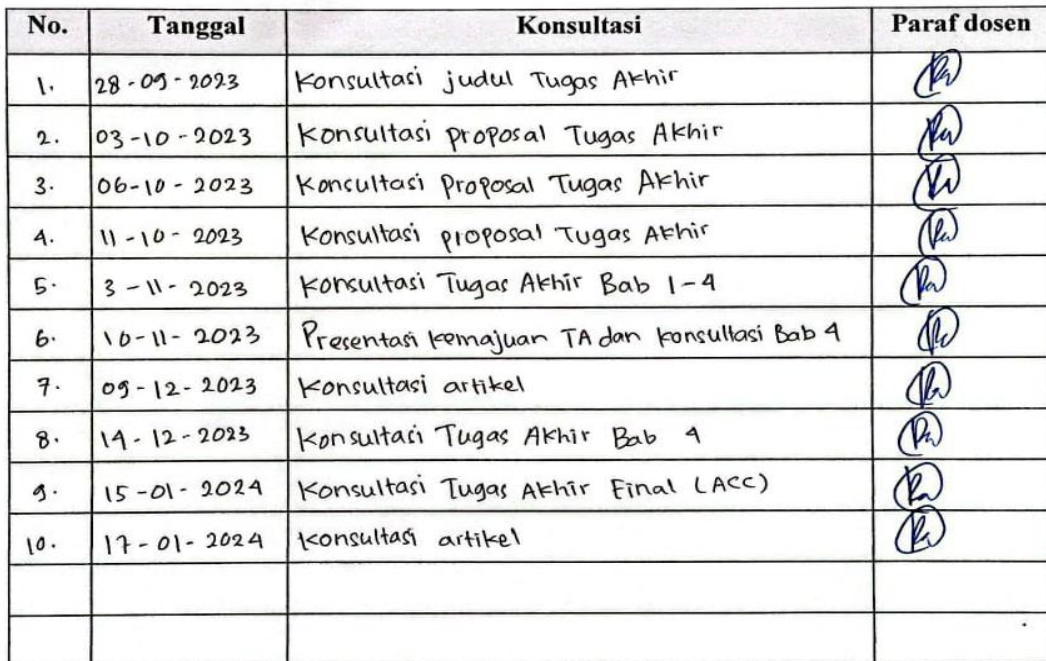 No. Tanggal Konsultasi Paraf dosen
1. 28-09-2023 Konsultasi judul Tugas Akhir
2. 03-10-2023 Konsultasi proposal Tugas Akhir
3. 06-10-2023 Konsultasi Proposal Tugas Akhir
4. 11-10-2023 Konsultasi proposal Tugas Akhir
5. 3-11-2023 Konsultasi Tugas Akhir Bab 1-4
6. 10-11-2023 Presentasi kemajuan TA dan konsultasi Bab 4
7. 09-12-2023 Konsultasi artikel
8. 14-12-2023 Konsultasi Tugas Akhir Bab 4
9. 15-01-2024 Konsultasi Tugas Akhir Final (ACC)
10. 17-01-2024 Konsultasi artikel